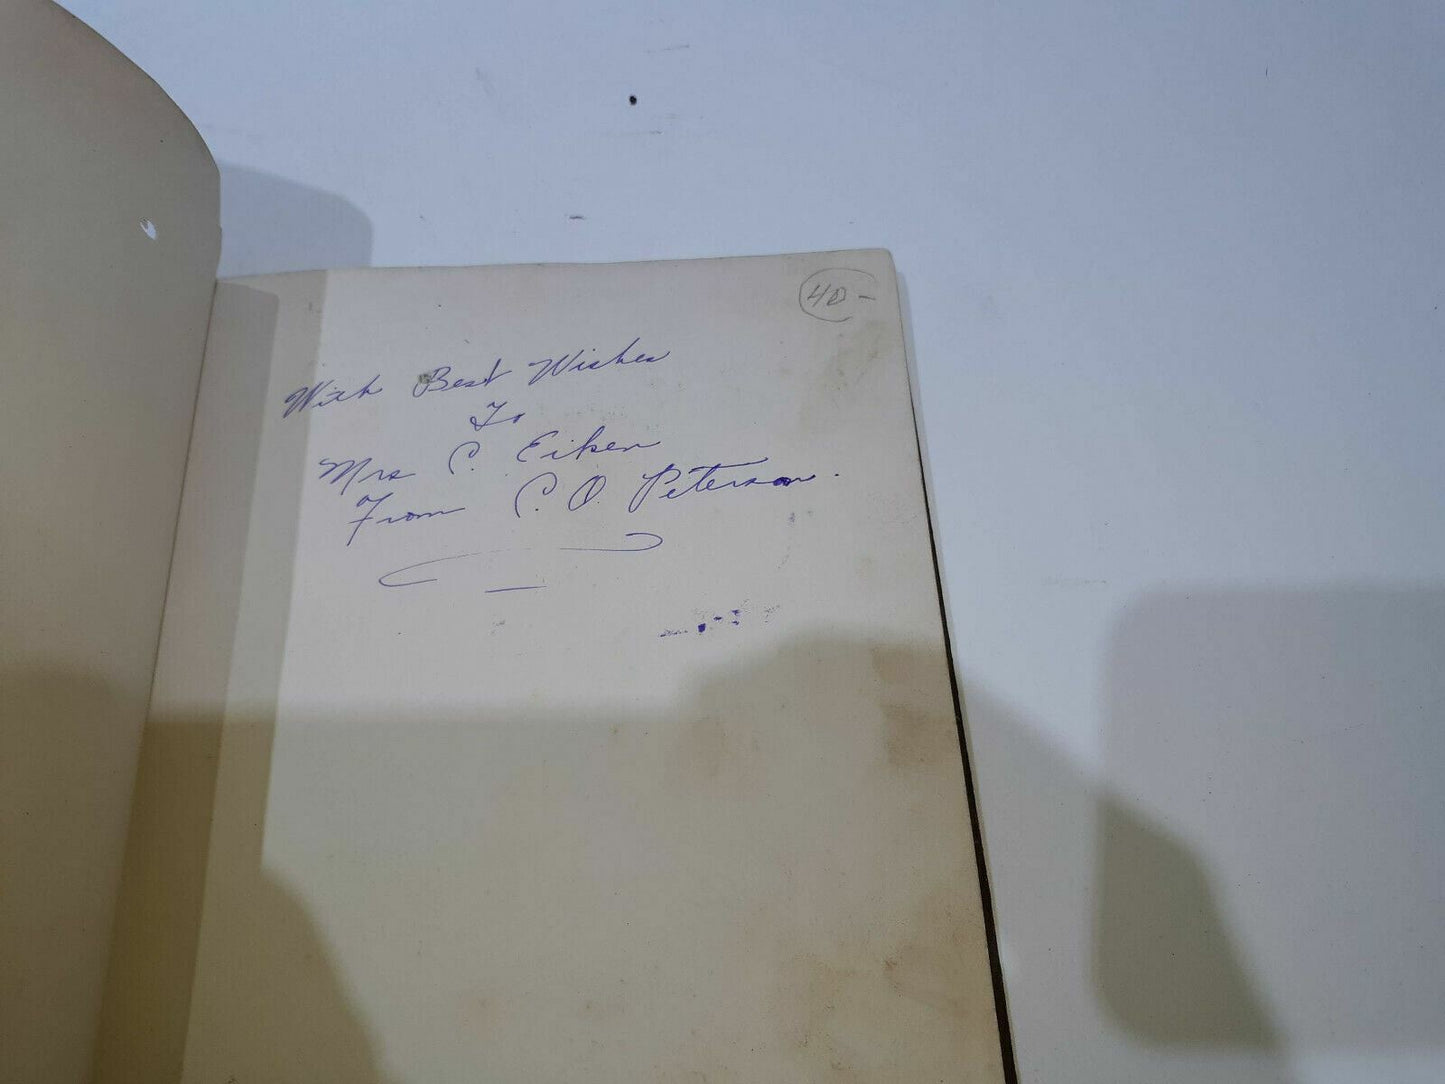 40-
With Best Wishes
To
Mrs C. Eiken
From C. O. Peterson.